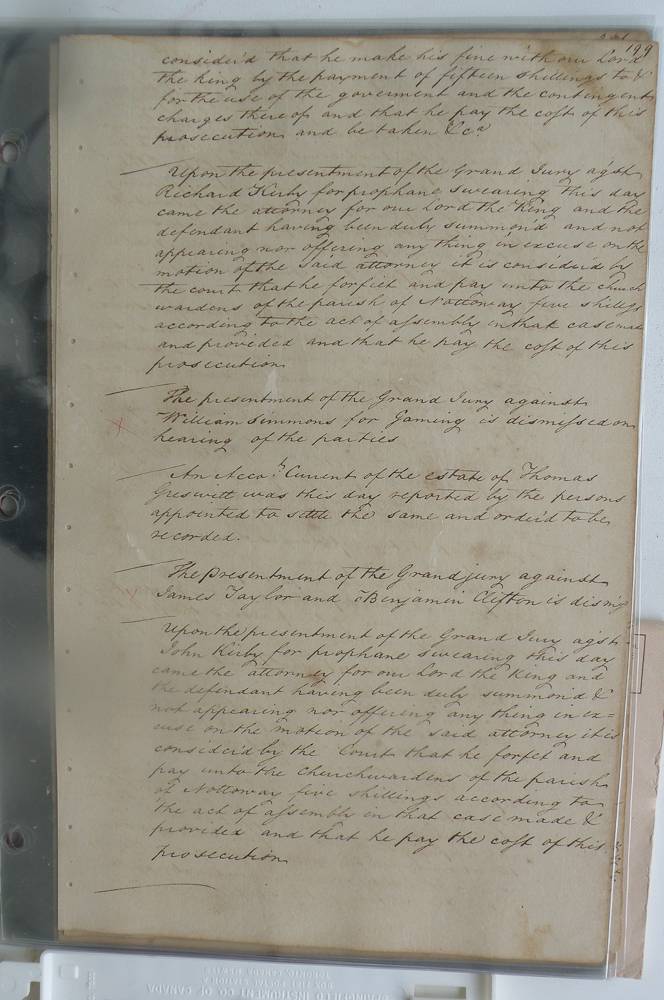 199
consider'd that he make his fine with our Lord
the King by the payment of fifteen shillings to &
for the use of the goverment and the contingent
charges there of and that he pay the cost of this
prosecution and be taken &ca
Upon the presentment of the Grand Jury agst
Richard Kirby for prophane swearing this day
came the attorney for our Lord the King and the
defendant having been duly summond and not
appearing nor offering any thing in excuse on the
motion of the said attorney it is consider'd by
the court that he forfiet and pay unto the church
wardens of the parish of Nottoway five shillgs
according to the act of assembly in that case made
and provided and that he pay the cost of this
prosecution
The presentment of the Grand Jury against
William Simmons for Gaming is dismissed on
hearing of the parties
An Accot Current of the estate of Thomas
Greswitt was this day reported by the persons
appointed to settle the same and order'd to be
recorded.
The presentment of the Grand jury against
James Taylor and Benjamin Clifton is dismist
Upon the presentment of the Grand Jury agst
John Kirby for prophane swearing this day
came the attorney for our Lord the King and
the defendant having been duly summond &
not appearing nor offering any thing in ex=
cuse on the motion of the said attorney it is
consider'd by the Court that he forfet and
pay unto the Churchwardens of the parish
of Nottoway five shillings according to
the act of assembly in that case made &
provided and that he pay the cost of this
prosecution
SPRINGFIELD INSTRUMENT CO. OF CANADA
TORONTO, CANADA